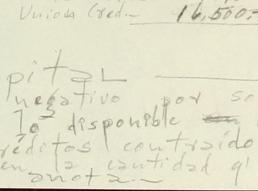 Unions Cred— 16,500.-
pital
negativo por so
lo disponible
réditos contraido
en la cantidad q'
anota.—